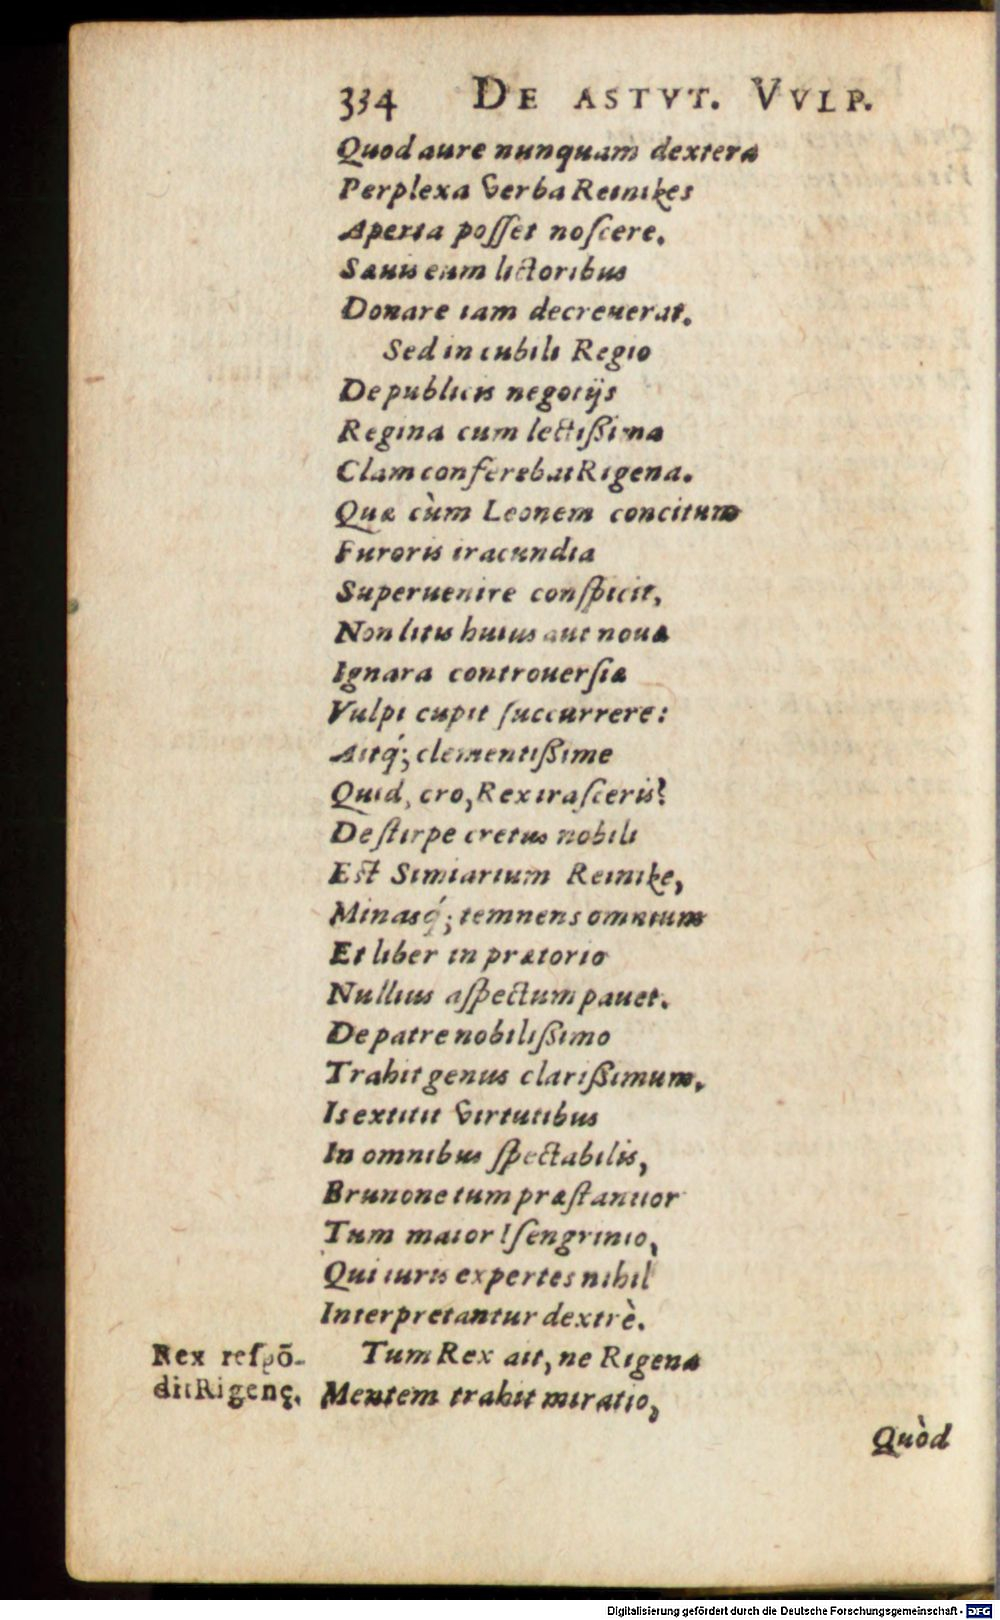 334 DE ASTVT. VVLP.
Quod aure nunquam dextera
Perplexa verba Reinikes
Aperta posset noscere.
Sæuis eum lictoribus
Donare iam decreuerat.
Sed in cubili Regio
De publicis negotijs
Regina cum lectißima
Clam conferebat Rigena.
Quæ cùm Leonem concitum
Furoris iracundia
Superuenire conspicit,
Non litis huius aut nouæ
Ignara controuersiæ
Vulpi cupit succurrere:
Aitq́; clementißime
Quid, cro, Rex irasceris?
De stirpe cretus nobili
Est Simiarium Reinike,
Minasq́; temnens omnium
Et liber in prætorio
Nullius aspectum pauet.
De patre nobilißimo
Trahit genus clarißimum,
Is extitit virtutibus
In omnibus spectabilis,
Brunone tum præstantior
Tum maior Isengrinio,
Qui iuris expertes nihil
Interpretantur dextrè.
Rex respõ-
dit Rigenę.
Tum Rex ait, ne Rigena
Mentem trahit miratio,
Quòd
Digitalisierung gefördert durch die Deutsche Forschungsgemeinschaft - DFG